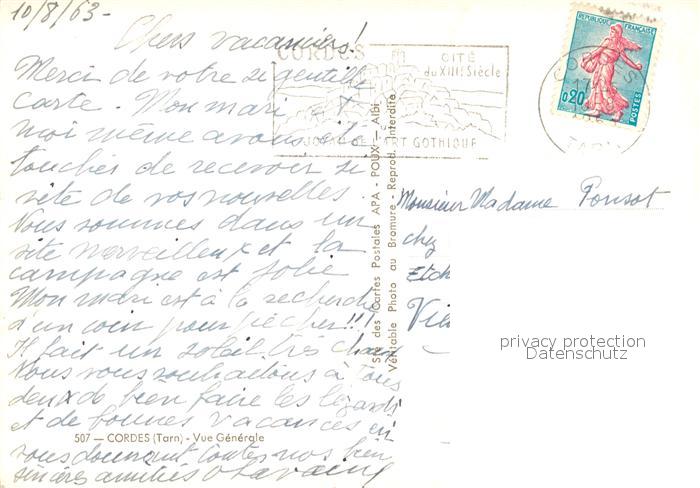 10/8/63-
Chers vacanciers!
Merci de votre si gentille
carte. Mon mari et
moi même avons été
touchés de recevoir si
vite de vos nouvelles.
Nous sommes dans un
site merveilleux et la
campagne est jolie
Mon mari est à la recherche
d'un coin pour pêcher!!!
Il fait un soleil très chaud
Nous vous souhaitons à tous
deux de bien faire les lézards
et de bonnes vacances en
vous donnant toutes nos bien
sincères amitiés
507 — CORDES (Tarn) - Vue Générale
CORDES
CITÉ
du XIIIe Siècle
JOYAU DE L'ART GOTHIQUE
REPUBLIQUE FRANÇAISE
0,20
POSTES
CORDES
TARN
des Cartes Postales APA - POUX - Albi
Véritable Photo au Bromure - Reprod. Interdite
Monsieur Madame Ponsot
chez
Etch
privacy protection
Datenschutz